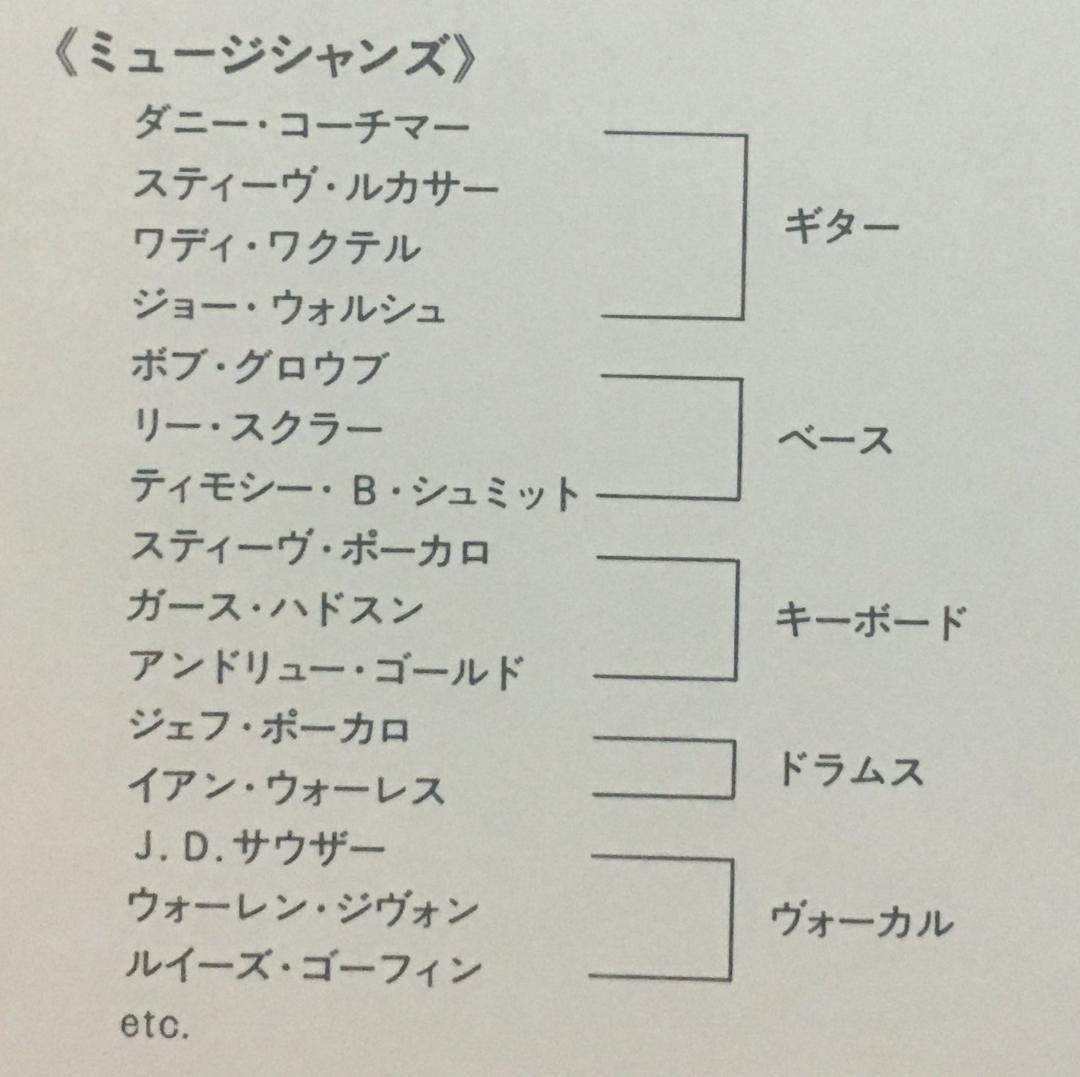 《ミュージシャンズ》
ダニー・コーチマー
スティーヴ・ルカサー
ワディ・ワクテル
ジョー・ウォルシュ
ギター
ボブ・グロウブ
リー・スクラー
ティモシー・B・シュミット
ベース
スティーヴ・ポーカロ
ガース・ハドスン
アンドリュー・ゴールド
キーボード
ジェフ・ポーカロ
イアン・ウォーレス
ドラムス
J.D.サウザー
ウォーレン・ジヴォン
ルイーズ・ゴーフィン
ヴォーカル
etc.